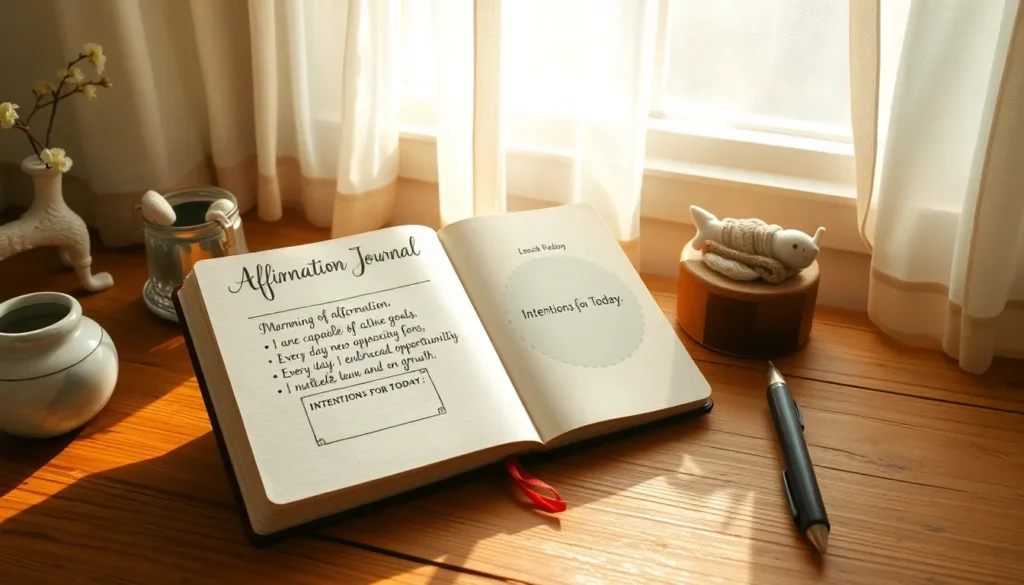 Affirmation Journal
Morning of affirmation,
• I are capable of athe goals.
• Every day new opposing fons,
• Every day. I embraced opportunibly
• I mulkete leau and en growth.
INTENTIONS FOR TODAY:
Intentions for Today.